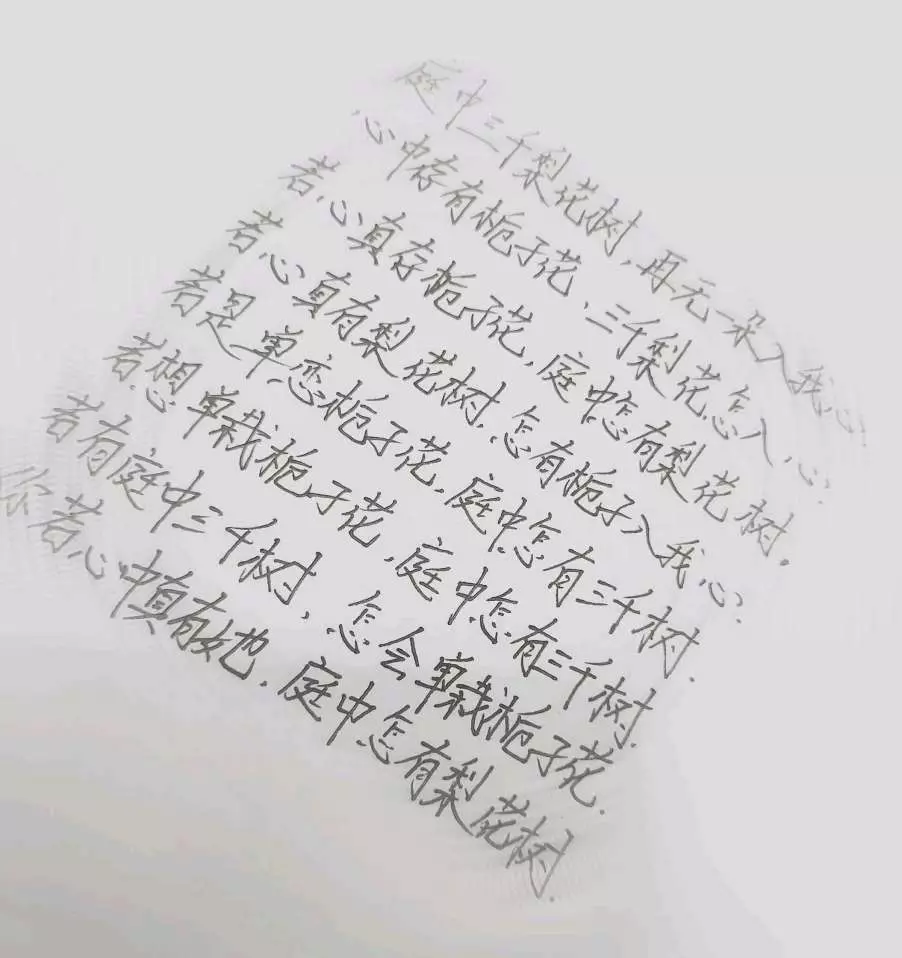 庭中三千梨花树,再无一朵入我心.
心中存有栀子花、三千梨花怎入心.
若心真存栀子花,庭中怎有梨花树.
若心真有梨花树,怎有栀子入我心.
若是单恋栀子花,庭中怎有三千树.
若想单栽栀子花,庭中怎有三千树.
若有庭中三千树,怎会单栽栀子花.
你若心中真有她,庭中怎有梨花树.